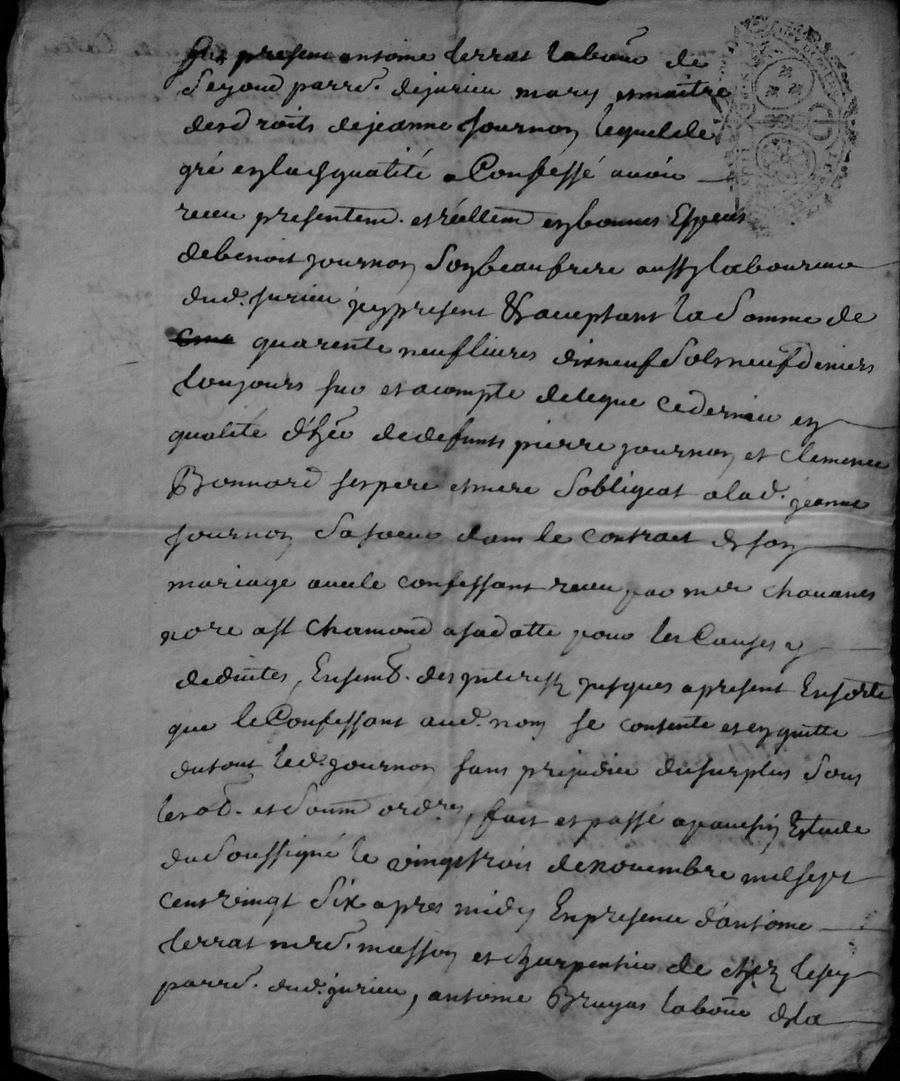 present antoine terrat labou.r de
parre. de jurieu mary et maitre
des droits de jeanne journon lequel de
gré en lad. qualité a Confessé avoir
receu presentem. et réellem. en bonnes Especes
de benoit journon son beaufrere aussy laboureur
dud. jurieu jcy present & acceptant la somme de
quarente neuf livres dix neuf sols neuf deniers
toujours sur et acompte de ceque ce dernier en
qualité d'her. de defunts pierre journon et clemence
Bonnard ses pere et mere s'obligeat a lad. jeanne
journon sa soeur dans le contract de son
mariage avec le confessant receu par me chavanes
nore a st chamond a sa dotte pour les Causes y
deduites, Ensemb. des jnterestz jusques a present En sorte
que le Confessant aud. nom se contente et en quitte
du tout led. journon sans prejudice du surplus sous
les ob. et soum. ordres, fait et passé a Estude
du soussigné le vingt trois de novembre mil sept
cent vingt six apres midy En presence d'antoine
terrat med. masson et charpentier de chez
parre. dud. jurieu, antoine Bruyas labou.r de la